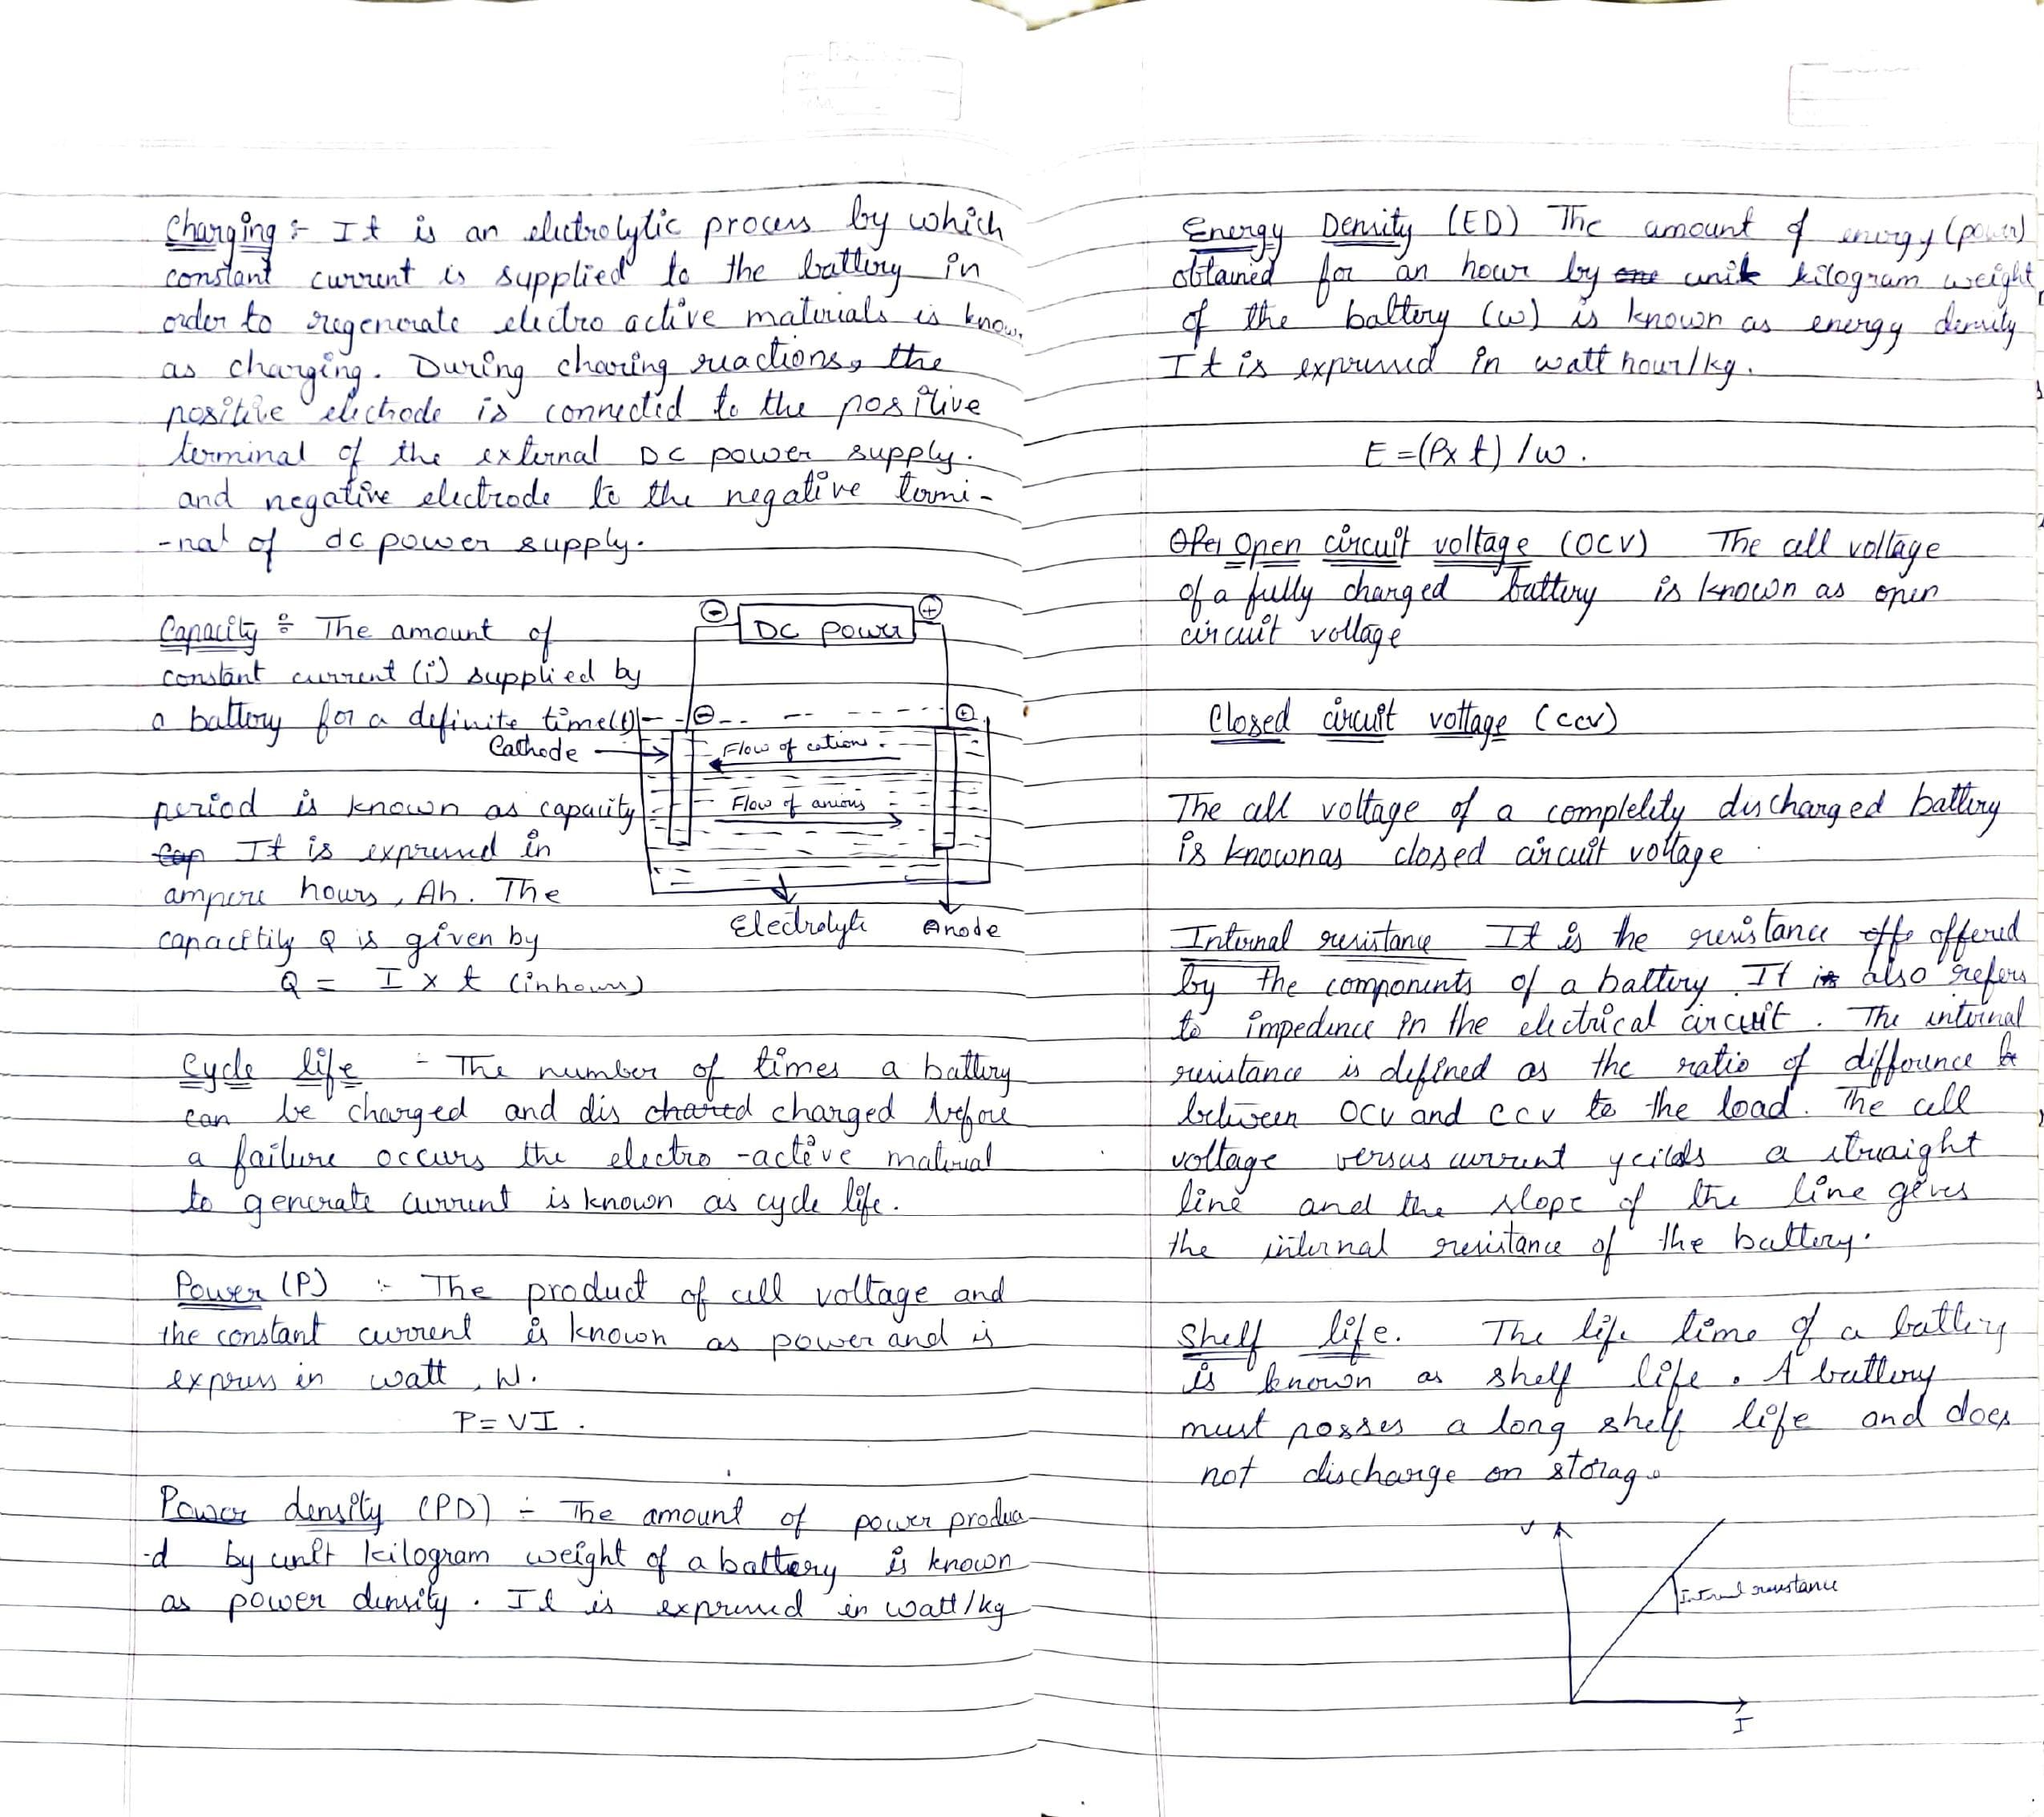 Charging :- It is an electrolytic process by which
constant current is supplied to the battery in
order to regenerate electro active materials is know
as charging. During charing reactions, the
positive electrode is connected to the positive
terminal of the external DC power supply.
and negative electrode to the negative termi-
-nal of dc power supply.
Capacity :- The amount of
constant current (i) supplied by
a battery for a definite time(t)
period is known as capacity
cap It is expressed in
ampere hours, Ah. The
capacitity Q is given by
Q = I x t (inhours)
⊖ DC power ⊕
⊖ ⊕
Cathode
Flow of cations
Flow of anions
Electrolyte Anode
Cycle life :- The number of times a battery
can be charged and dis chared charged before
a failure occurs the electro-active material
to generate current is known as cycle life.
Power (P) :- The product of cell voltage and
the constant current is known as power and is
express in watt, W.
P = VI.
Power density (PD) :- The amount of power produce
-d by unit kilogram weight of a battery is known
as power density. It is expressed in watt/kg
Energy Density (ED) The amount of energy (power)
obtained for an hour by one unit kilogram weight
of the battery (w) is known as energy density
It is expressed in watt hour/kg.
E = (P x t) / w.
Open Open circuit voltage (OCV) The cell voltage
of a fully charged battery is known as open
circuit voltage
Closed circuit voltage (ccv)
The cell voltage of a completely discharged battery
is known as closed circuit voltage
Internal resistance It is the resistance offe offered
by the components of a battery. It is also refers
to impedence in the electrical circuit. The internal
resistance is defined as the ratio of difference be
between OCV and CCV to the load. The cell
voltage versus current yeilds a straight
line and the slope of the line gives
the internal resistance of the battery.
Shelf life. The life time of a battery
is known as shelf life. A battery
must posses a long shelf life and does
not discharge on storage
V
Internal resistance
I